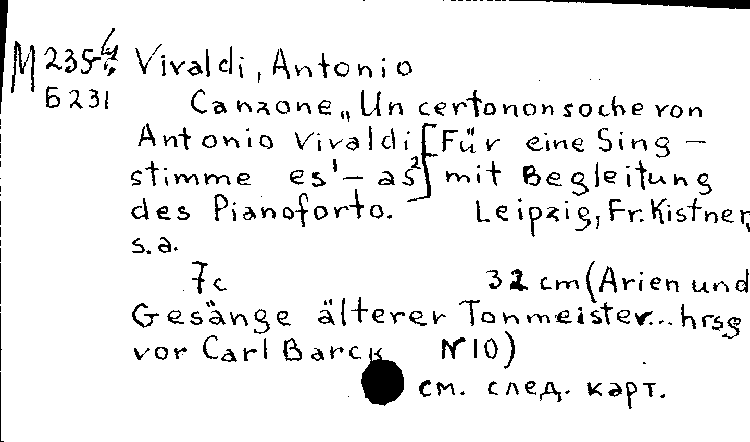 M 235-4 Vivaldi, Antonio
Б 231
Canzone „Un certononsoche von
Antonio Vivaldi [Für eine Sing-
stimme es¹ - as²] mit Begleitung
des Pianoforto. Leipzig, Fr. Kistner,
s.a.
7c 32 cm (Arien und
Gesänge älterer Tonmeister... hrsg
vor Carl Barck N10)
см. след. карт.